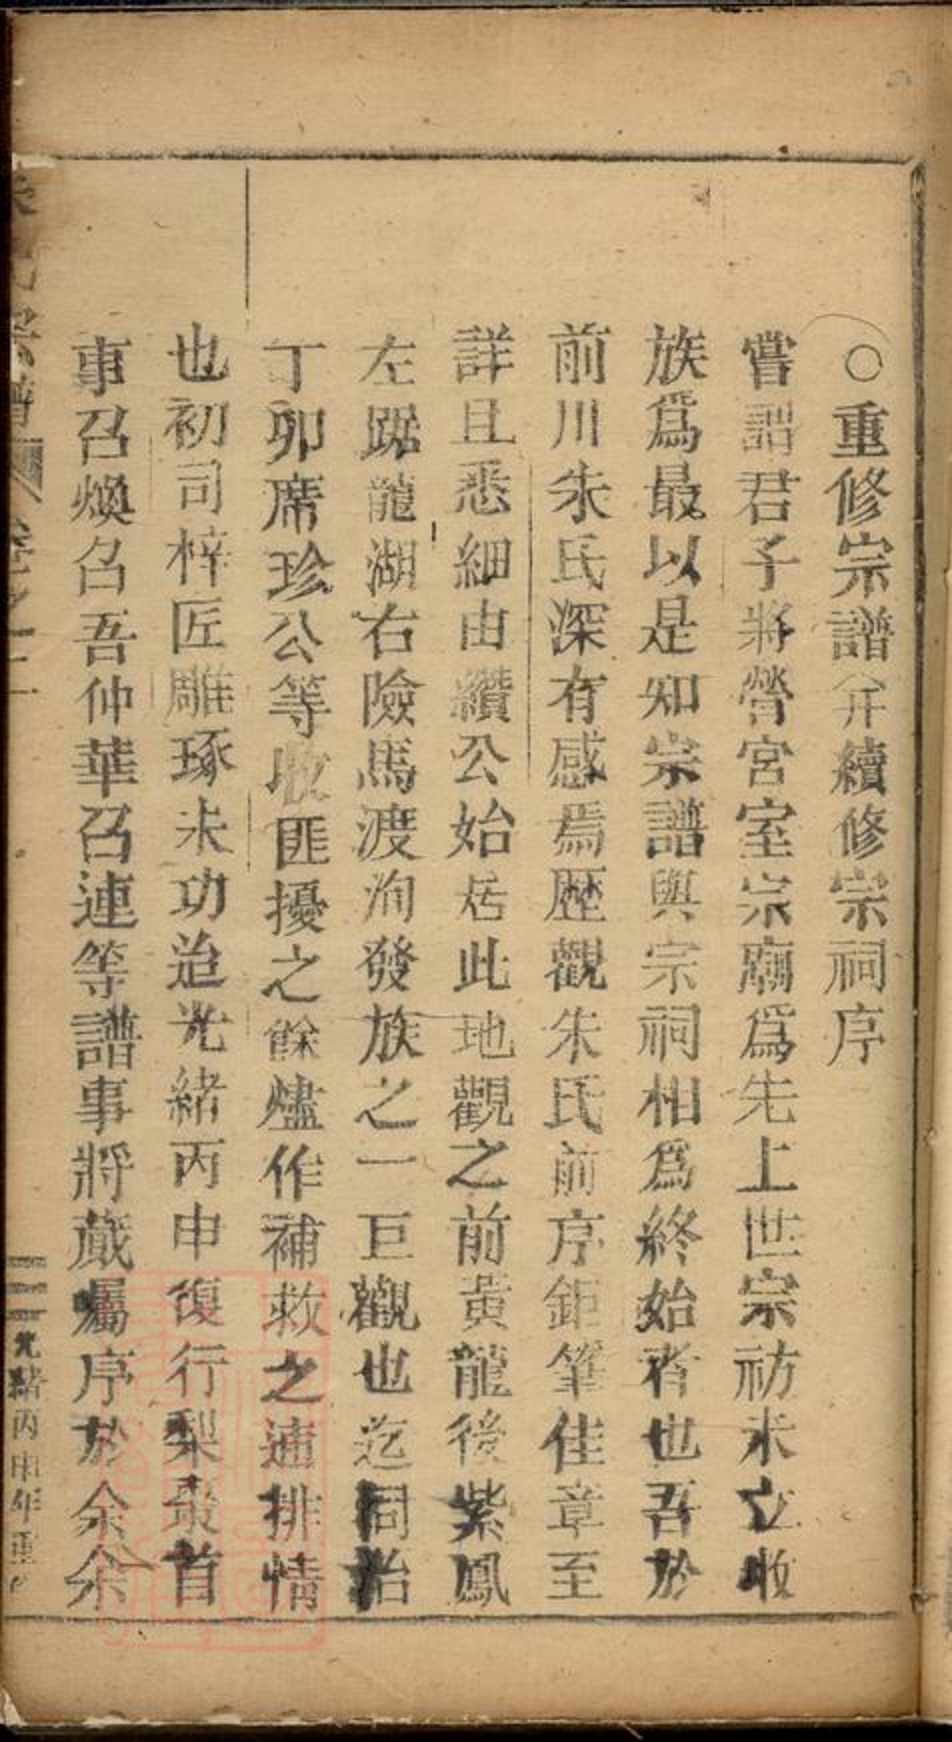 ○重修宗譜并續修宗祠序
嘗謂君子將營宮室宗廟爲先上世宗祊未立收
族爲最以是知宗譜與宗祠相爲終始者也吾於
前川朱氏深有感焉歷觀朱氏前序鉅筆佳章至
詳且悉細由纘公始居此地觀之前黃龍後紫鳳
左踞龍湖右險馬渡洵發族之一巨觀也迄同治
丁卯席珍公等收匪擾之餘燼作補救之 排情
也初司梓匠雕琢未功迨光緒丙申復行梨棗首
事召煥召吾仲華召連等譜事將蕆屬序於余余
宗譜 卷之二 光緒丙申年重